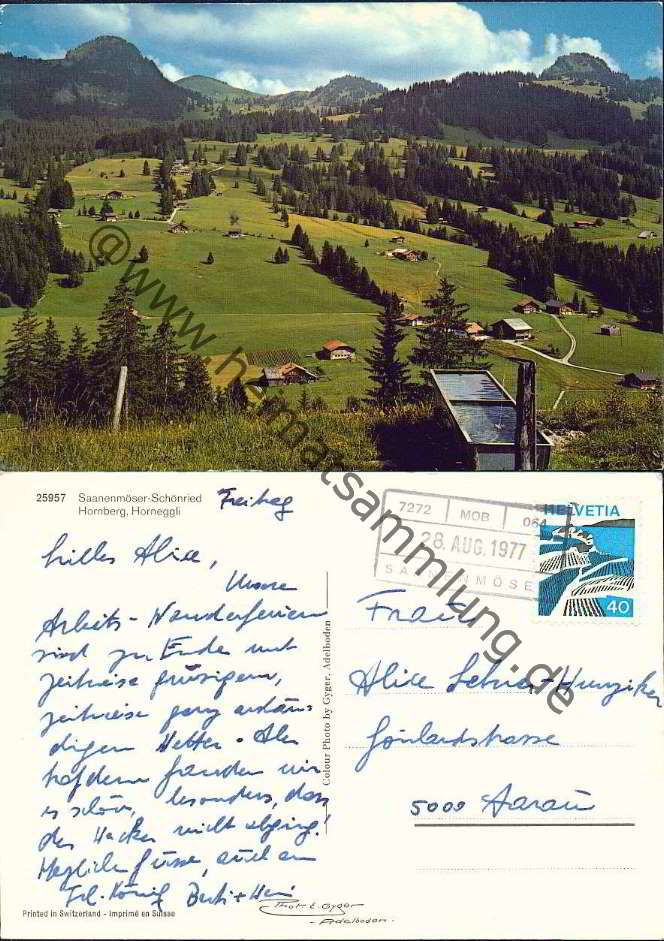 @www.heimatsammlung.de
25957 Saanenmöser-Schönried
Hornberg, Horneggli
Freitag
7272 MOB 064
28. AUG. 1977
SAANENMÖSE
HELVETIA
40
Alice,
Unsere
Arbeits-Wanderferien
sind zu Ende mit
zeitweise
zeitweise ganz anstän-
digem Wetter.
fanden wir
es schön, besonders, dass
der nicht abging!
Herzliche Grüsse, auch an
Frl. König
Frau
Alice -Hunziker
5000 Aarau
Colour Photo by Gyger, Adelboden
Phot. E. Gyger
- Adelboden -
Printed in Switzerland - Imprimé en Suisse